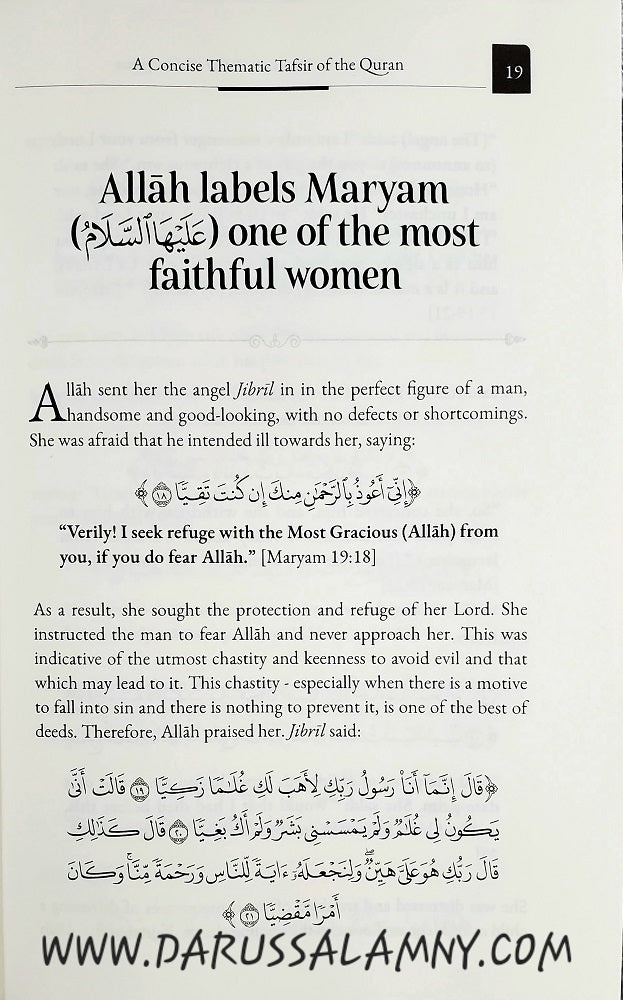 A Concise Thematic Tafsir of the Quran
19
Allāh labels Maryam
(عَلَيْهَا ٱلسَّلَامُ) one of the most
faithful women
Allāh sent her the angel Jibrīl in in the perfect figure of a man,
handsome and good-looking, with no defects or shortcomings.
She was afraid that he intended ill towards her, saying:
﴿إِنِّىٓ أَعُوذُ بِٱلرَّحْمَٰنِ مِنكَ إِن كُنتَ تَقِيًّا ١٨﴾
“Verily! I seek refuge with the Most Gracious (Allāh) from
you, if you do fear Allāh.” [Maryam 19:18]
As a result, she sought the protection and refuge of her Lord. She
instructed the man to fear Allāh and never approach her. This was
indicative of the utmost chastity and keenness to avoid evil and that
which may lead to it. This chastity - especially when there is a motive
to fall into sin and there is nothing to prevent it, is one of the best of
deeds. Therefore, Allāh praised her. Jibrīl said:
﴿قَالَ إِنَّمَآ أَنَا۠ رَسُولُ رَبِّكِ لِأَهَبَ لَكِ غُلَٰمًا زَكِيًّا ١٩ قَالَتْ أَنَّىٰ
يَكُونُ لِى غُلَٰمٌ وَلَمْ يَمْسَسْنِى بَشَرٌ وَلَمْ أَكُ بَغِيًّا ٢٠ قَالَ كَذَٰلِكِ
قَالَ رَبُّكِ هُوَ عَلَىَّ هَيِّنٌ ۖ وَلِنَجْعَلَهُۥٓ ءَايَةً لِّلنَّاسِ وَرَحْمَةً مِّنَّا ۚ وَكَانَ
أَمْرًا مَّقْضِيًّا ٢١﴾
WWW.DARUSSALAMNY.COM